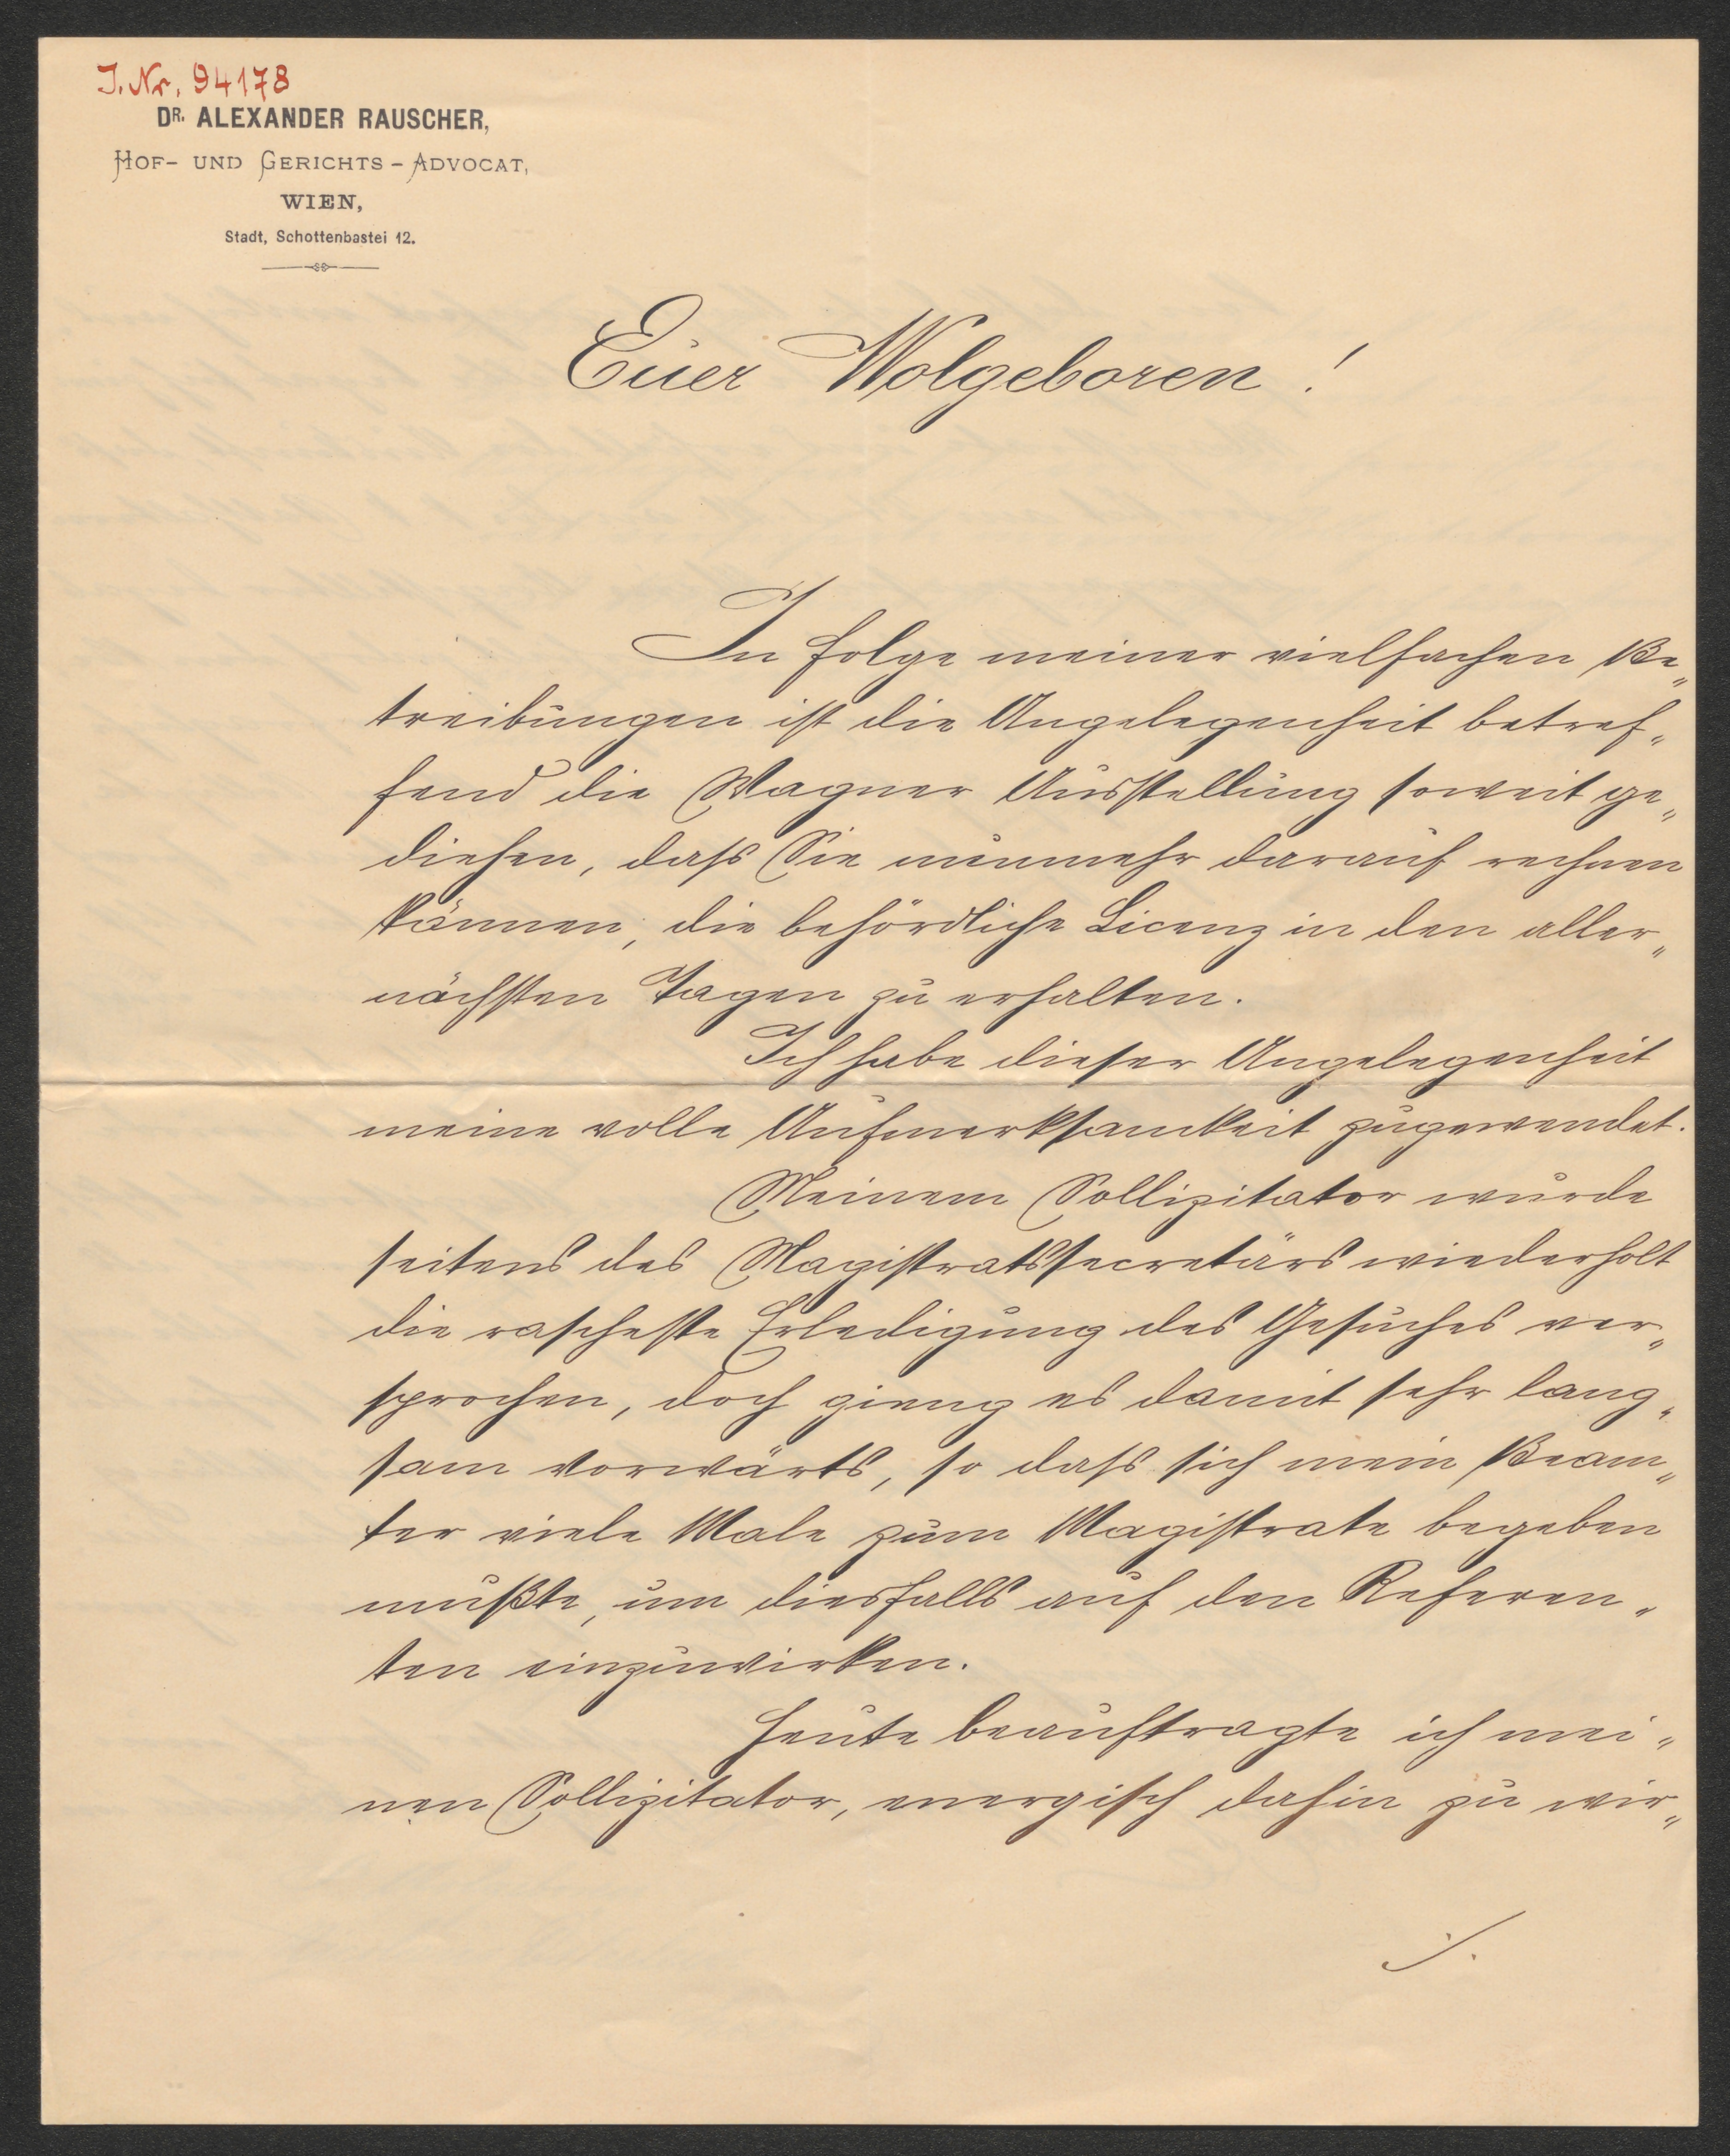 I.Nr. 94178
DR. ALEXANDER RAUSCHER,
HOF- UND GERICHTS-ADVOCAT,
WIEN,
Stadt, Schottenbastei 12.
Euer Wolgeboren!
In folge meiner vielfachen Be„
treibungen ist die Angelegenheit betref„
fend die Wagner Ausstellung soweit ge„
diehen, dass Sie nunmehr darauf rechnen
können, die behördliche Licenz in den aller„
nächsten Tagen zu erhalten.
Ich habe dieser Angelegenheit
meine volle Aufmerksamkeit zugewendet.
Meinem Sollizitator wurde
seitens des Magistratssecretärs wiederholt
die rascheste Erledigung des Gesuches ver„
sprochen, doch gieng es damit sehr lang„
sam vorwärts, so dass sich mein Beam„
ter viele Male zum Magistrate begeben
mußte, um diesfalls auf den Referen„
ten einzuwirken.
Heute beauftragte ich mei„
nen Sollizitator, energisch dahin zu wir„
./.